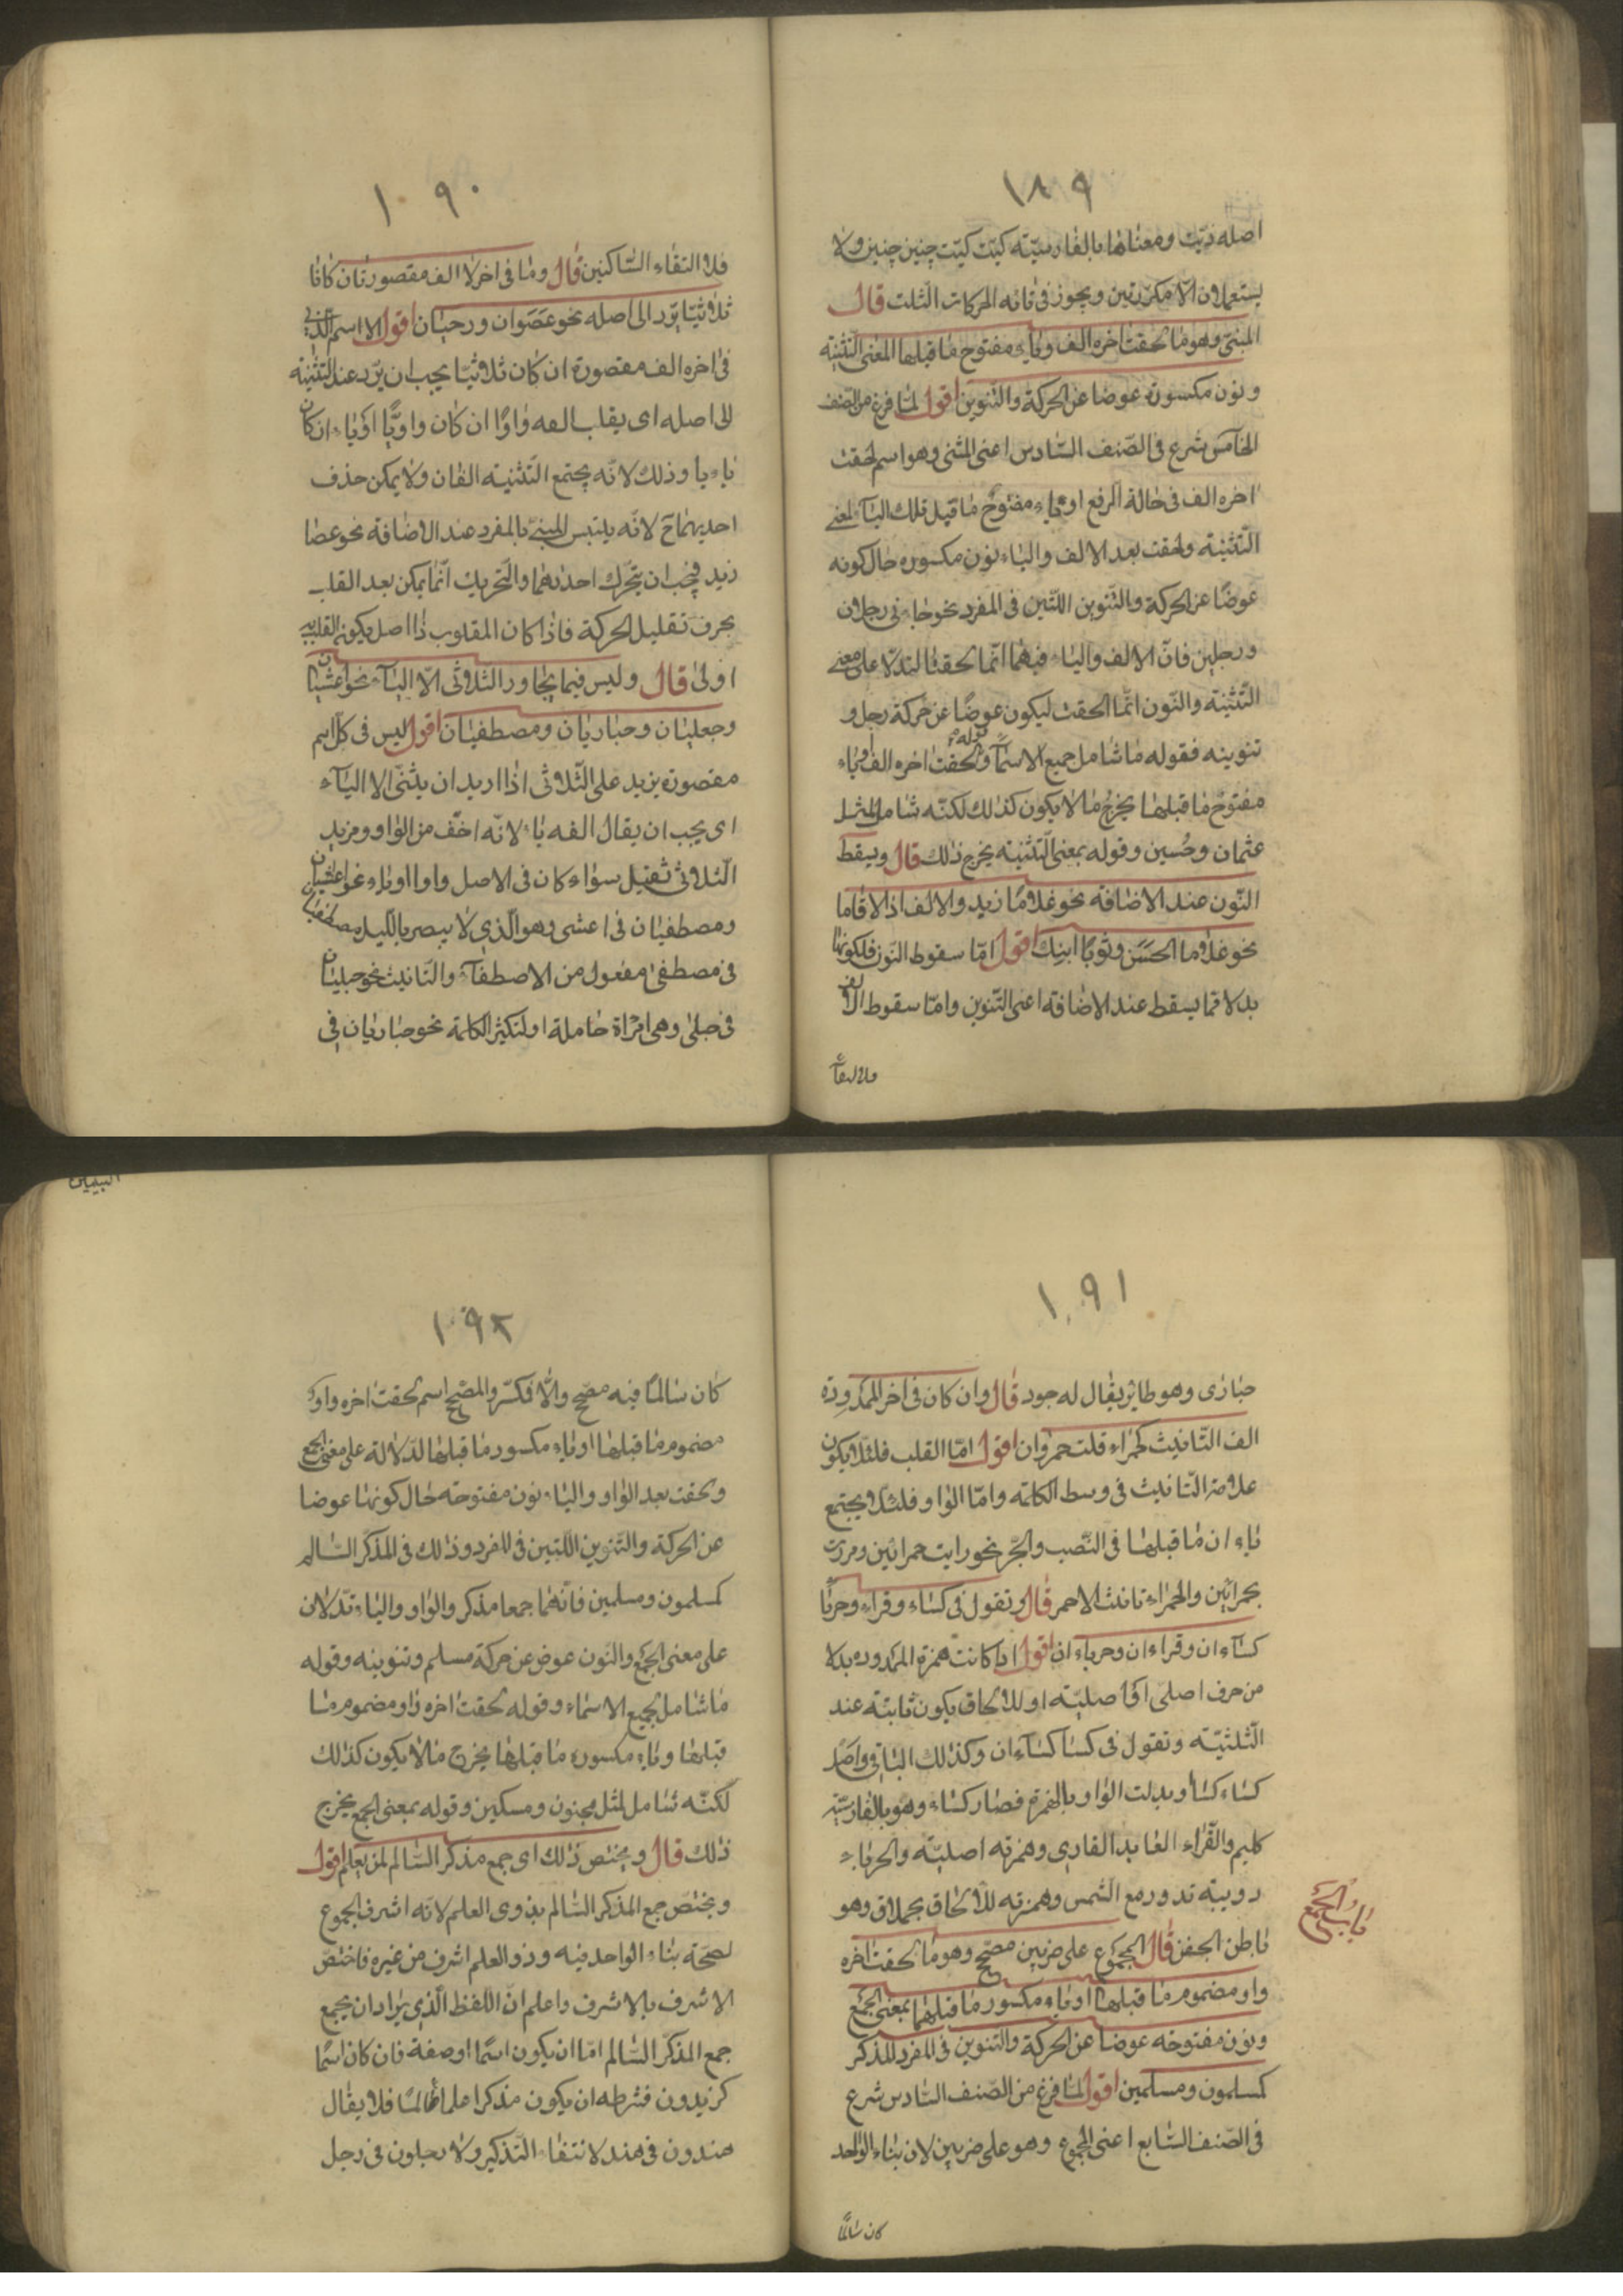 ١٨٩
اصله ذيّت ومعناها بالفارسيّة كيّت كيّت چنين چنين ولا
يستعملان الّا مكرّرتين ويجوز فى تائه الحركات الثلث قال
المثنى وهو ما لحقت اخره الف وياء مفتوح ما قبلها المعنى التّثنية
ونون مكسورة عوضا عن الحركة والتّنوين اقول لمّا فرغ من الصنف
الخامس شرع فى الصّنف السّادس اعنى المثنى وهو اسم لحقت
اخره الف فى حالة الرفع او ياء مفتوح ما قبل تلك الياء لمعنى
التّثنية ولحقت بعد الالف والياء نون مكسوره حال كونه
عوضًا عن الحركة والتّنوين اللّتين فى المفرد نحو جاءنى رجلان
ورجلين فانّ الالف والياء فيهما انّما لحقتا لتدلّا على معنى
التّثنية والنّون انّما الحقت ليكون عوضًا عن حركة رجل و
تنوينه فقوله ما شامل جميع الاسمآء وقوله لحقت اخره الف او ياء
مفتوح ما قبلها يخرج ما لا يكون كذلك لكنّه شامل لمثل
عثمان وحُسين وقوله بمعنى التّثنية يخرج ذلك قال ويسقط
النّون عند الاضافة نحو غلامًا زيد والالف اذا لاقاها
نحو غلاما الحسَن وثوبًا ابنك اقول امّا سقوط النّون فلكونها
بدلا عمّا يسقط عند الاضافة اعنى التّنوين وامّا سقوط الالف
فلالتقآء
١٩٠
فلا التقاء السّاكنين قال وما فى اخرلا الف مقصورتان كانا
ثلاثيّا يرّد الى اصله نحو عَصَوان ورحيان اقول الاسم الّذى
فى اخره الف مقصورة ان كان ثلاثيّا يجب ان يرّد عند التّثنية
الى اصله اى يقلب الفه واوًا ان كان واويًّا او ياء ان كان
يائيا وذلك لانّه يجتمع التّثنية الفان ولا يمكن حذف
احديهما ح لانّه يلتبس المبنى بالمفرد عند الاضافة نحو عصا
زيد فيجب ان يتحرّك احدهما والتّحريك انّما يمكن بعد القلب
بحرف تقليل الحركة فاذا كان المقلوب ذا اصل يكون القلب اليه
اولىٰ قال وليس فيما يجاور الثلاثى الّا اليآء نحو اعشيان
وحبليان وحباريان ومصطفيان اقول ليس فى كلّ اسم
مقصورة يزيد على الثّلاثى اذا اريد ان يثنّى الا اليآء
اى يجب ان يقال الفه ياء لانّه اخفّ من الواو ومزيد
الثّلاثى ثقيل سواء كان فى الاصل واوا او ياء نحو اعشيان
ومصطفيان فى اعشى وهو الّذى لا يبصر بالّليل مصطفيان
فى مصطفىٰ مفعول من الاصطفآء والتّانيث نحو حبليان
فى حبلىٰ وهى امرٔاة حاملة او لتكثير الكلمة نحو حباريان فى
١٩١
حبارى وهو طائر يقال له جود قال وان كان فى اخر الممدودة
الف التّانيث كحمراء قلت حمراوان اقول امّا القلب فلئلّا يكون
علامة التّانيث فى وسط الكلمة وامّا الواو فلئلّا يجتمع
ياء ان ما قبلها فى النّصب والجّر نحو رايت حمرائين ومررت
بحمرائين والحمراء تانيث الاحمر قال وتقول فى كساء وقراء وحرباء
كسآءان وقراءان وحرباءان اقول اذا كانت همزة الممدوده بدلا
من حرف اصلى او اصليّة او للالحاق يكون ثابتة عند
الثّلثيّة وتقول فى كسا كسآءان وكذلك الباقى واصل
كساء كساو بدلت الواو بالهمزة فصار كساء وهو بالفارسيّة
كليم والقّراء العابد القارى وهمزته اصليّة والحرباء
دويبة تدور مع الشّمس وهمزته للالحاق بحملاق وهو
باطن الجفن قال المجموع على ضربين مصّحح وهو ما لحقت اخره
باب الجمع
واو مضموم ما قبلها او ياء مكسور ما قبلهما بمعنى الجمع
ونون مفتوحه عوضا عن الحركة والتنوين فى المفرد المذكر
كمسلمون ومسلمين اقول لمّا فرغ من الصّنف السّادس شرع
فى الصّنف السّابع اعنى المجموع وهو على ضربين لان بناء الواحد
كان سالمًا
١٩٢
كان سالمًا فيه مصحّح والّا فمكسّر والمصّحح اسم لحقت اخره واو
مضموم ما قبلها او ياء مكسور ما قبلها لدلالة على معنى الجمع
ولحقت بعد الواو والياء نون مفتوحة حال كونها عوضا
عن الحركة والتّنوين اللّتين فى المفرد وذلك فى المذكّر السّالم
كمسلمون ومسلمين فانّهما جمعا مذكر والواو والياء تدّلان
على معنى الجمع والنون عوض عن حركة مسلم وتنوينه وقوله
ما شامل لجميع الاسماء وقوله لحقت اخره واو مضموم ما
قبلها وياء مكسوره ما قبلها يخرج ما لا يكون كذلك
لكنّه شامل لمثل مجنون ومسكين وقوله بمعنى الجمع يخرج
ذلك قال ويختص ذلك اى جمع مذكر السّالم لمن يعلم اقول
ويختصّ جمع المذكر السّالم بذوى العلم لانّه اشرف الجموع
لصّحّة بناء الواحد فيه وذو العلم اشرف من غيره فاختصّ
الاشرف بالاشرف واعلم انّ اللّفظ الّذى يراد ان يجمع
جمع المذكّر السّالم امّا ان يكون اسمًا او صفة فان كان اسمًا
كزيدون فشرطه ان يكون مذكرا علما عالمًا فلا يقال
هندون فى هند لانتفاء التّذكير ولا رجلون فى رجل